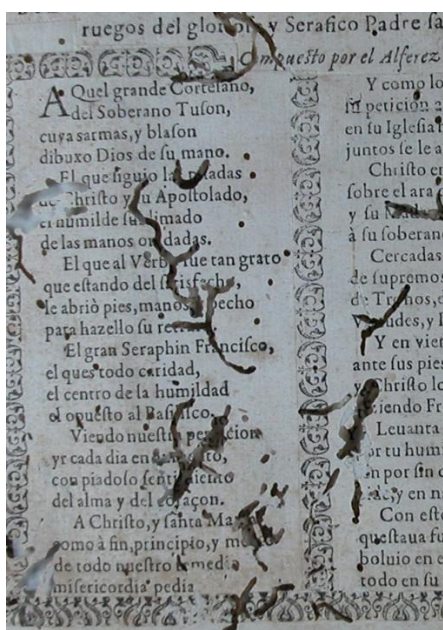 ruegos del glorioso y Serafico Padre
Compuesto por el Alferez
AQuel grande Cortesano,
del Soberano Tuson,
cuyas armas, y blason
dibuxo Dios de su mano.
El que siguio las pisadas
de Christo y su Apostolado,
el humilde sublimado
de las manos
El que al Verbo fue tan grato
que estando del satisfecho,
le abriò pies, manos, y pecho
para hazello su
El gran Seraphin Francisco,
el ques todo caridad,
el centro de la humildad
el opuesto al Basilisco.
Viendo nuestra
yr cada dia en
con piadoso sentimiento
del alma y del coraçon.
A Christo, y santa Maria
como à fin, principio, y medio
de todo nuestro remedio
misericordia pedia
Y como
su peticion
en su Iglesia
juntos se le
Christo
sobre el ara
y su Madre
à su
Cercadas
de supremos
de Tronos,
y
Y en
ante sus pies
y Christo
diziendo
Leuanta
por tu
en por fin
y en
Con esto
questaua
boluio en
todo en su